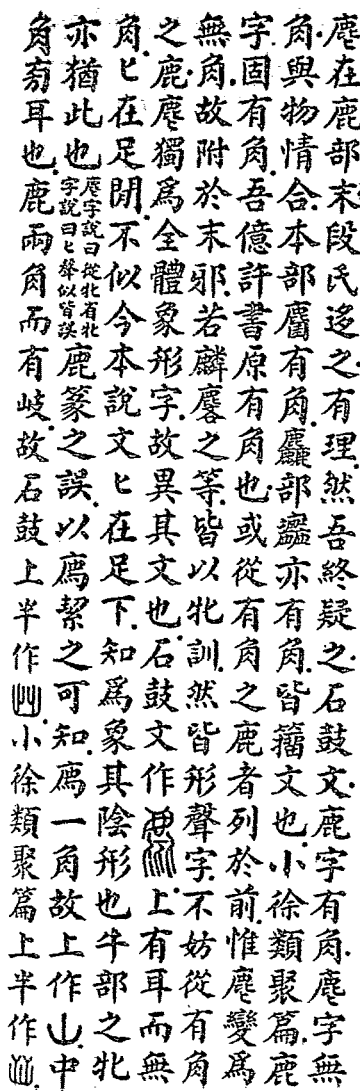 麀在鹿部末段氏迻之有理然吾終疑之石鼓文鹿字有角麀字無
角與物情合本部麕有角麤部亦有角皆籒文也小徐類聚篇鹿
字固有角吾億許書原有角也或從有角之鹿者列於前惟麀變爲
無角故附於末邪若麟麔之等皆以牝訓然皆形聲字不妨從有角
之鹿麀獨爲全體象形字故異其文也石鼓文作上有耳而無
角匕在足閒不似今本說文匕在足下知爲象其陰形也牛部之牝
亦猶此也麀字說曰從牝省牝字說曰匕聲似皆誤鹿篆之誤以廌絜之可知廌一角故上作中
角旁耳也鹿兩角而有岐故石鼓上半作小徐類聚篇上半作